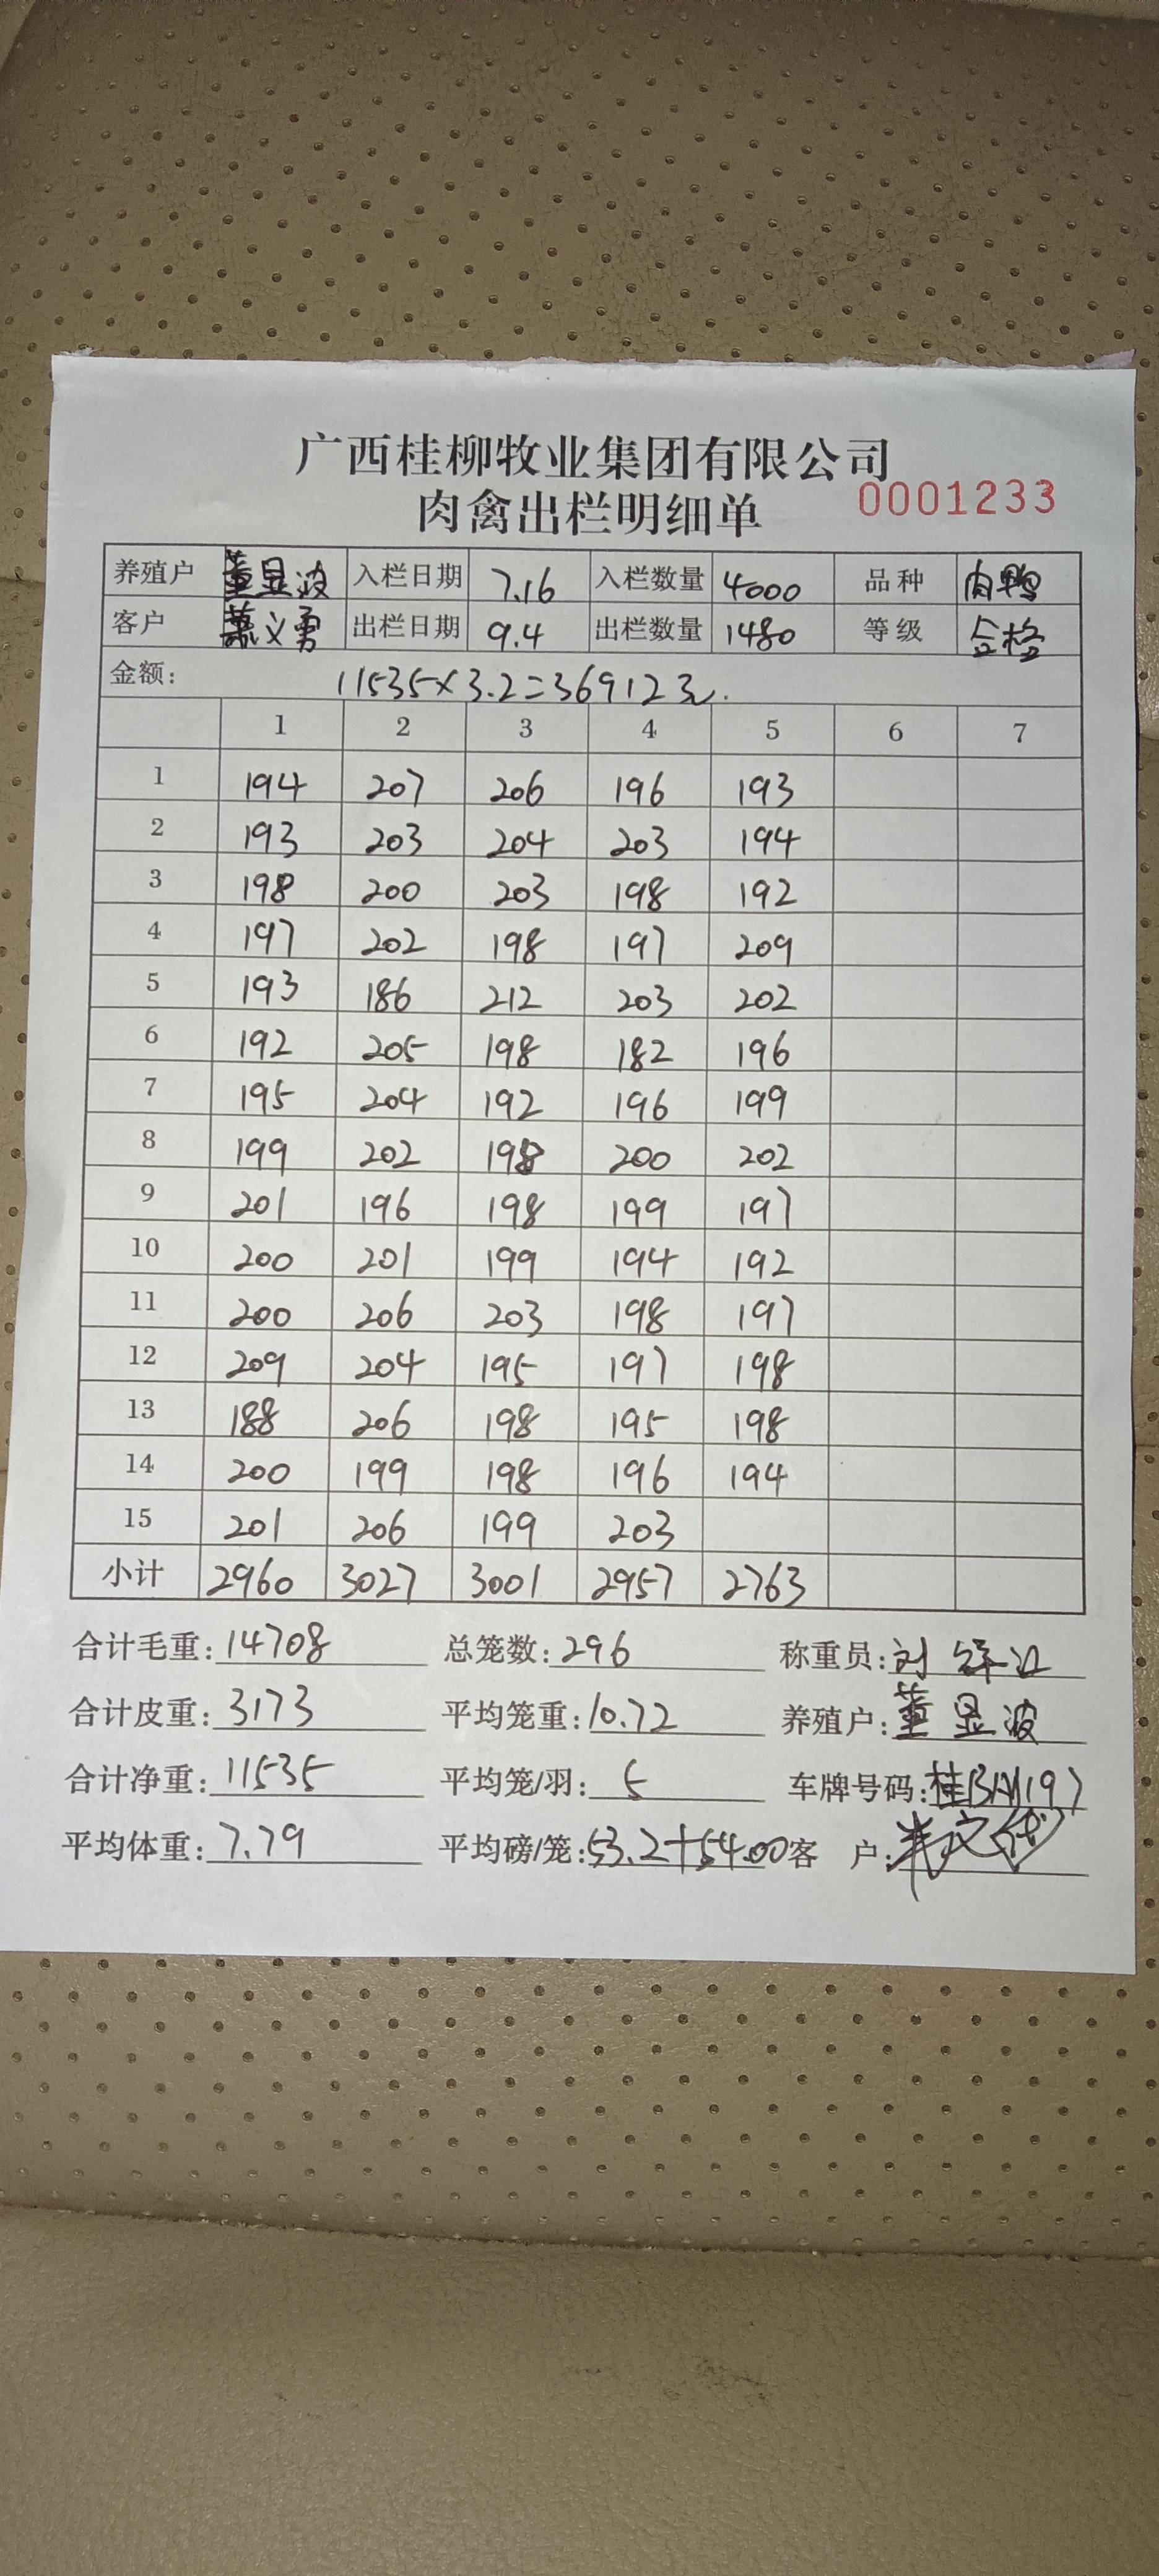 广西桂柳牧业集团有限公司
肉禽出栏明细单 0001233
养殖户 董显波 入栏日期 7.16 入栏数量 4000 品种 肉鸭
客户 义勇 出栏日期 9.4 出栏数量 1480 等级 合格
金额: 11535×3.2=36912元.
1 2 3 4 5 6 7
1 194 207 206 196 193
2 193 203 204 203 194
3 198 200 203 198 192
4 197 202 198 197 209
5 193 186 212 203 202
6 192 205 198 182 196
7 195 204 192 196 199
8 199 202 198 200 202
9 201 196 198 199 197
10 200 201 199 194 192
11 200 206 203 198 197
12 209 204 195 197 198
13 188 206 198 195 198
14 200 199 198 196 194
15 201 206 199 203
小计 2960 3027 3001 2957 2763
合计毛重: 14708 总笼数: 296 称重员: 刘
合计皮重: 3173 平均笼重: 10.72 养殖户: 董显波
合计净重: 11535 平均笼/羽: 5 车牌号码:
平均体重: 7.79 平均磅/笼: 53.2+54.00 客户: